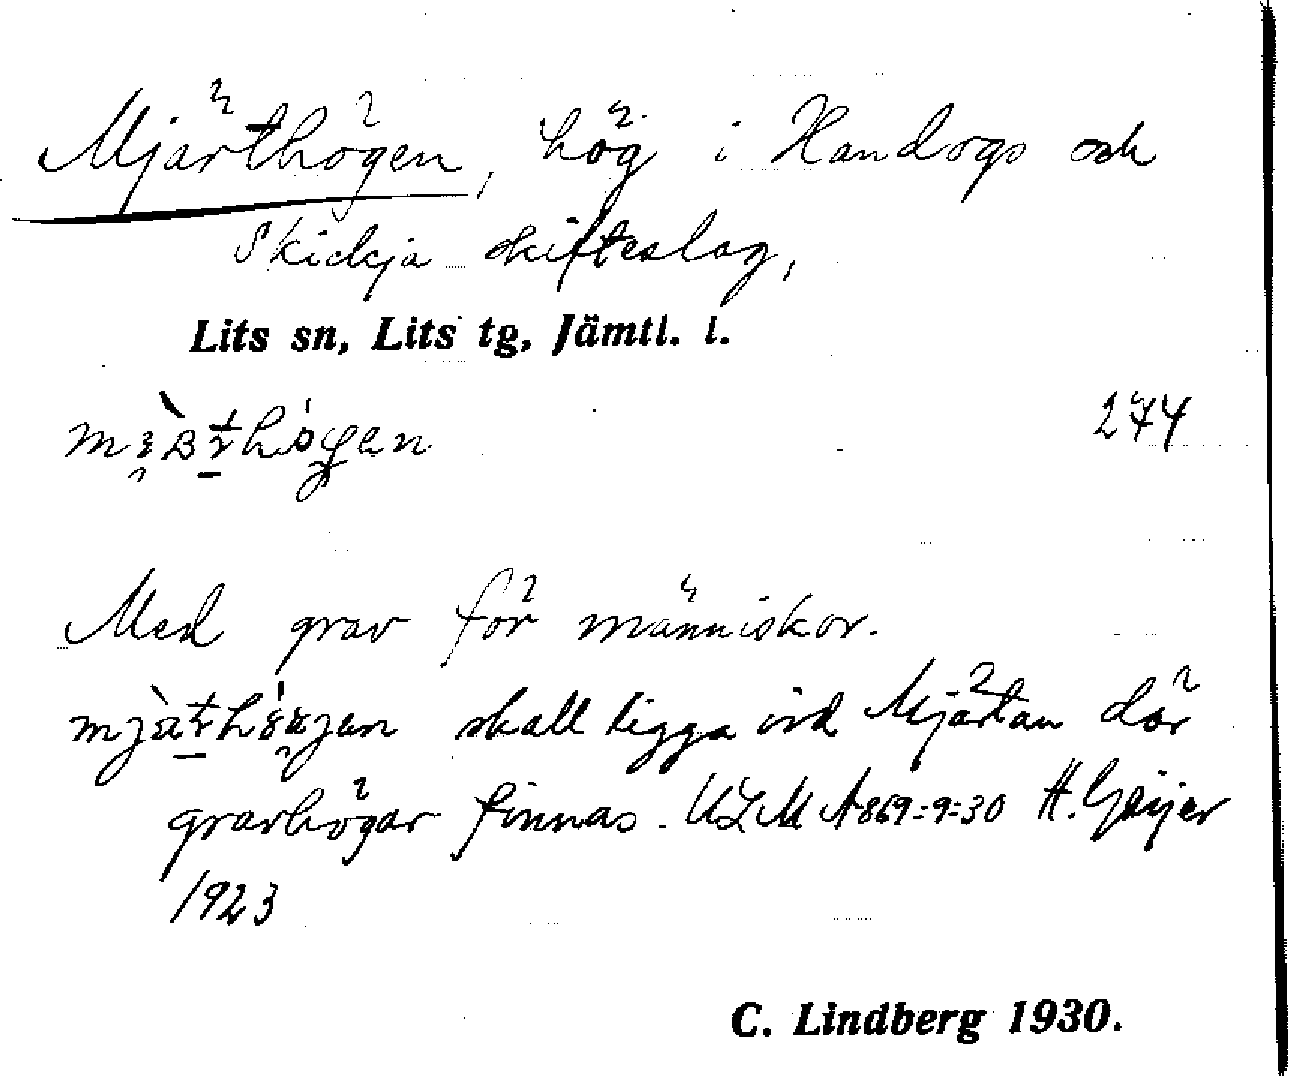 Mjärthögen, hög i Handogs och
Skickja skifteslag,
Lits sn, Lits tg, Jämtl. l.
274
Med grav för människor.
skall ligga vid Mjärtan där
gravhögar finnas. ULMA 869:9:30 H. Geijer
1923
C. Lindberg 1930.